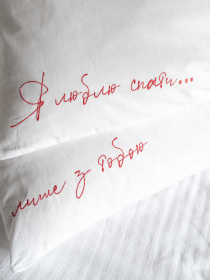 Я люблю спати...
лише з тобою